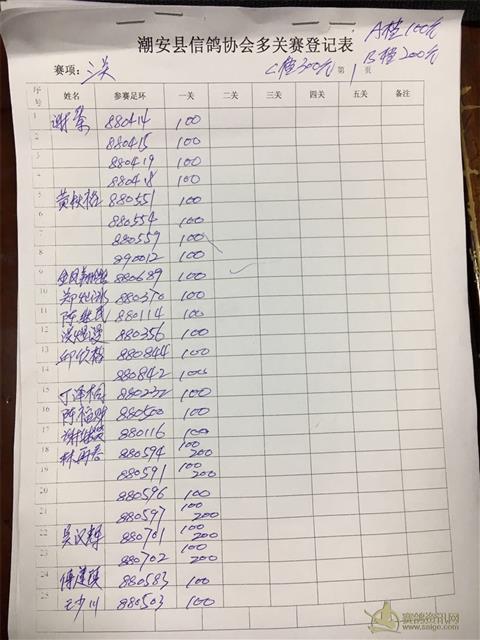 潮安县信鸽协会多关赛登记表
A档100元
B档200元
C档300元
赛项：三关 第1页
序号 姓名 参赛足环 一关 二关 三关 四关 五关 备注
1 谢荣 880414 100
2 880415 100
3 880419 100
4 880418 100
5 黄 880551 100
6 880554 100
7 880559 100
8 890012 100
9 880689 100
10 880370 100
11 880114 100
12 880356 100
13 邱 880844 100
14 880842 100
15 丁泽 880232 100
16 陈福 880500 100
17 谢 880116 100
18 林再春 880594 100 200
19 880591 100 200
20 880596 100
21 880597 100 200
22 吴汉 880701 100 200
23 880702 100 200
24 880583 100
25 王少川 880503 100
赛鸽资讯网
www.saige.com